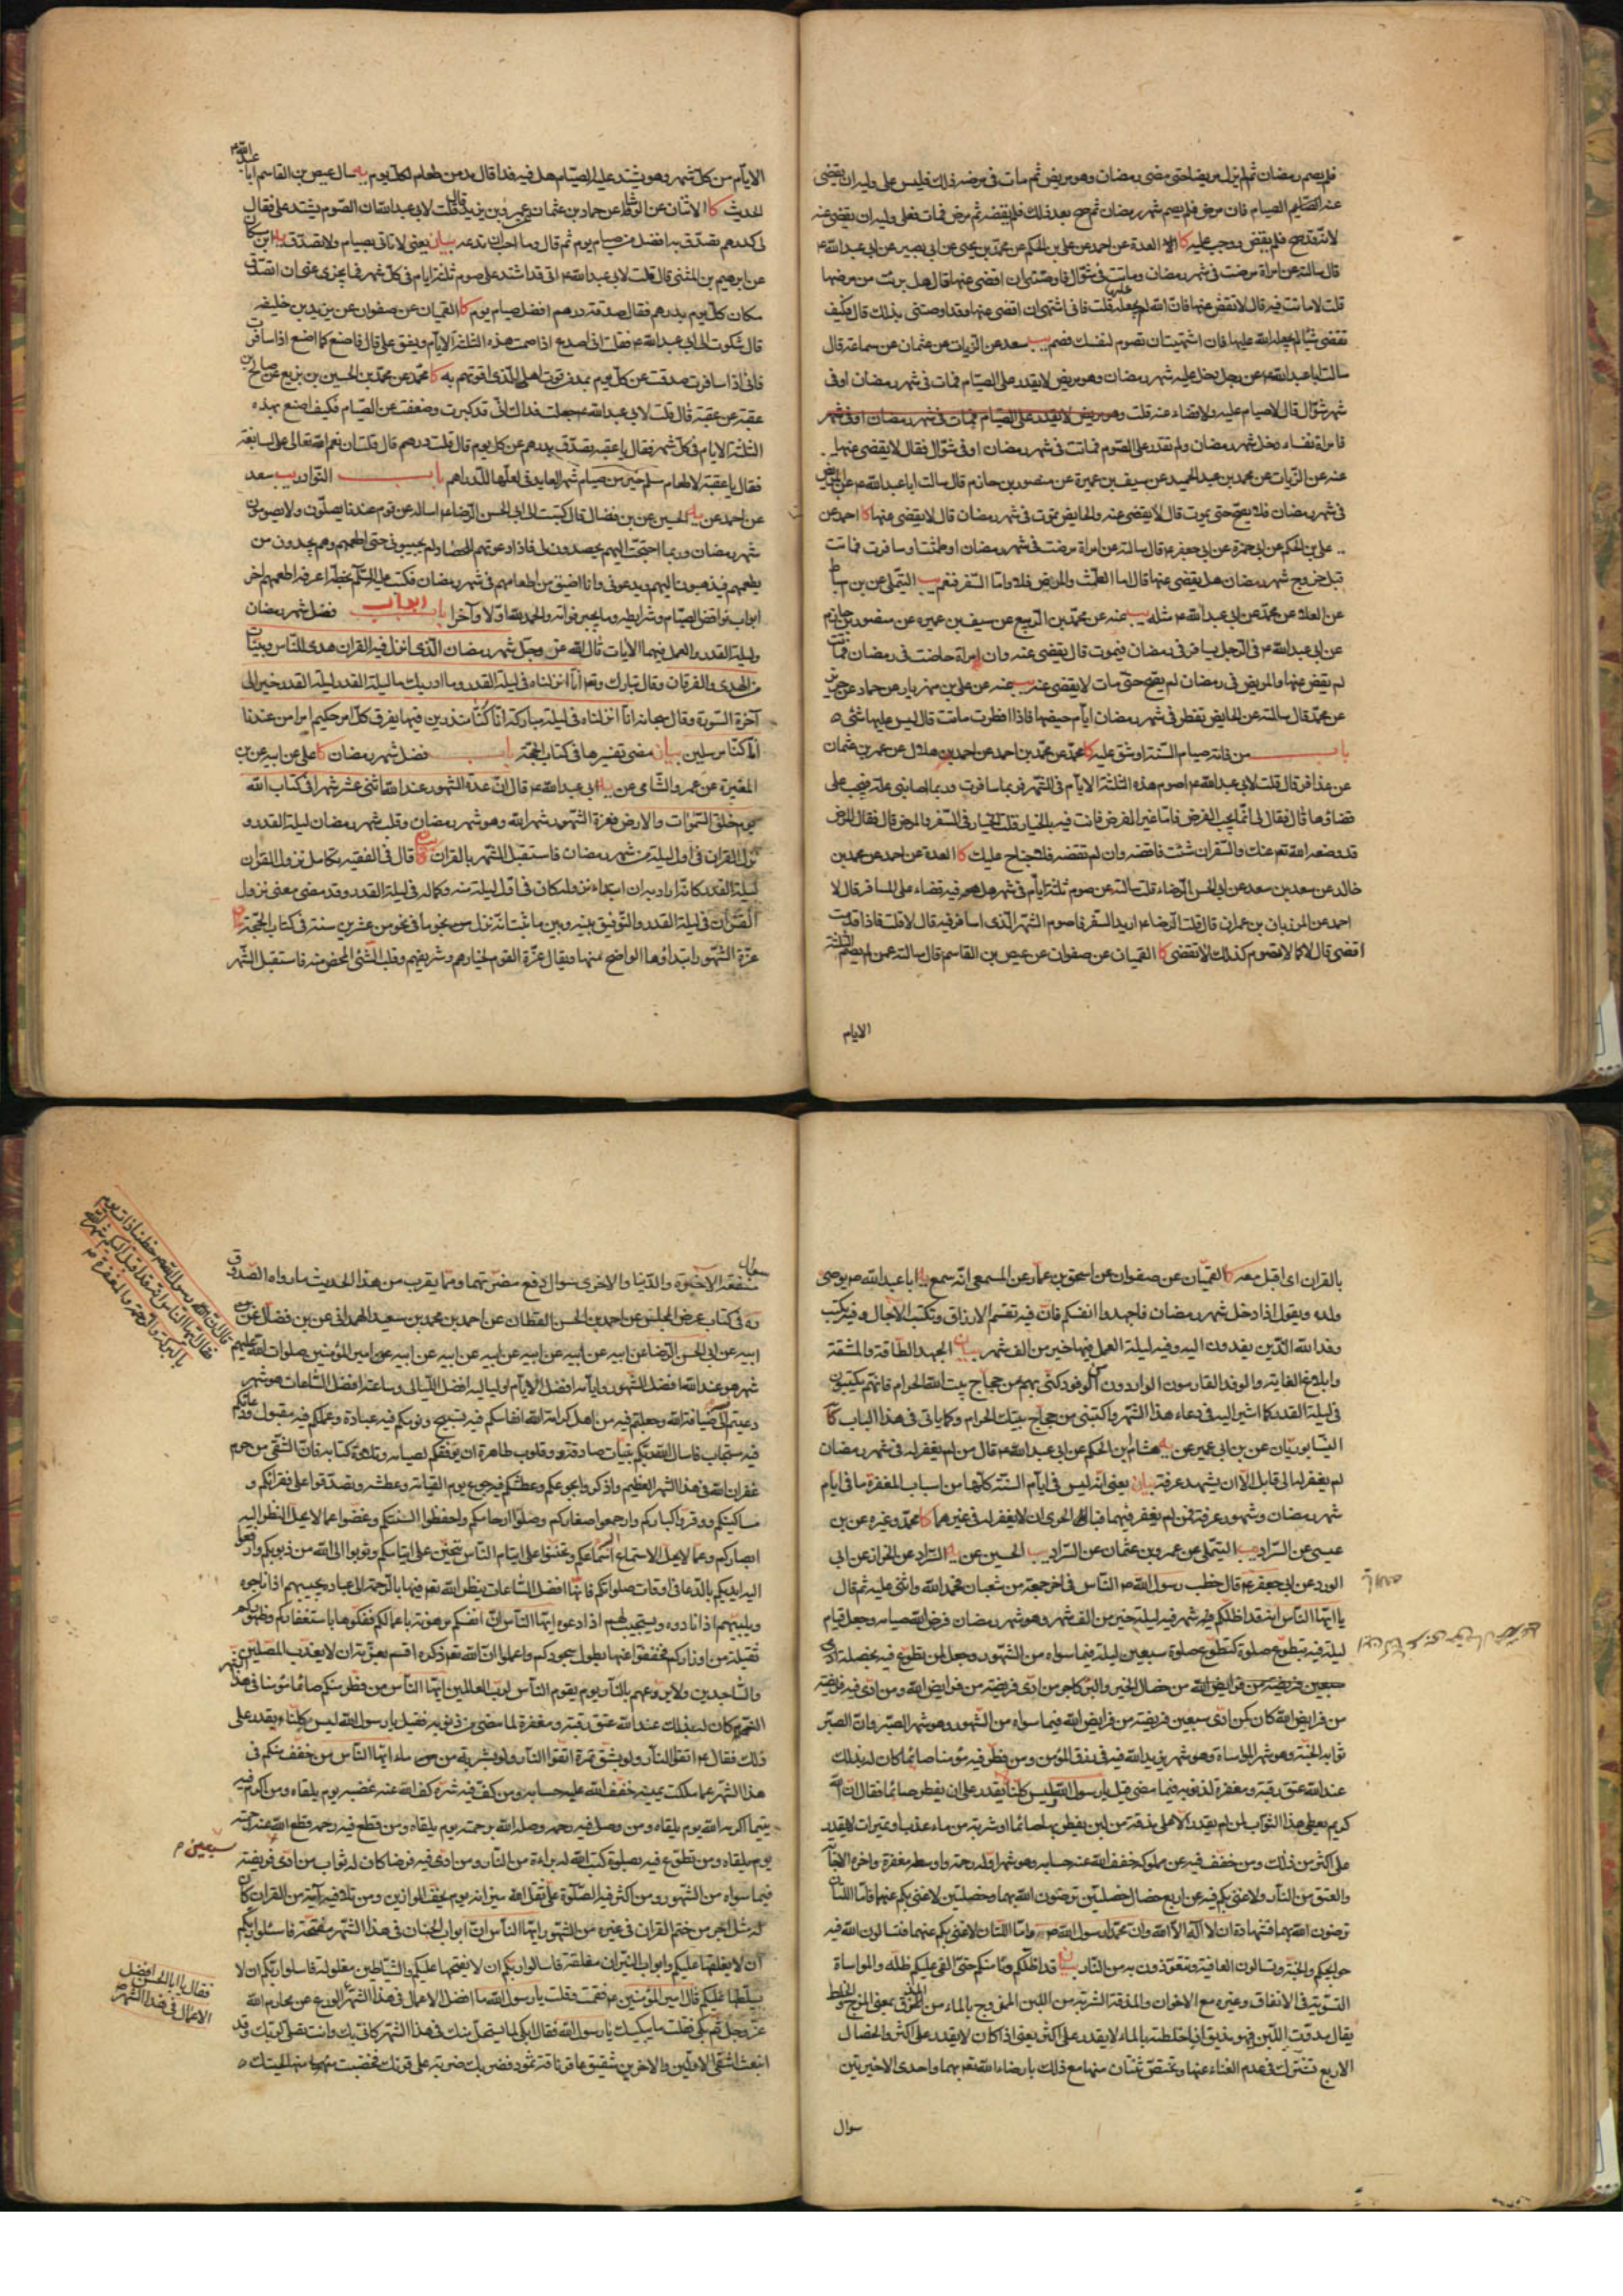 فلم يصم رمضان ثم لم يزل مريضا حتى مضى رمضان وهو مريض ثم مات في مرضه ذلك فليس على وليه ان يقضى
عنه الصيام فان مرض فلم يصم شهر رمضان ثم صح بعد ذلك فلم يقضه ثم مرض فمات فعلى وليه ان يقضى عنه
لانه قد صح فلم يقض ووجب عليه كا العدة عن احمد عن على بن الحكم عن محمد بن يحيى عن ابى بصير عن ابى عبد الله ع
قال سالته عن امراة مرضت في شهر رمضان وماتت في شوال فاوصتنى ان اقضى عنها قال هل برئت من مرضها
قلت لا ماتت فيه قال لا تقض عنها فان الله لم يجعله عليها قلت فانى اشتهى ان اقضى عنها وقد اوصتنى بذلك قال فكيف
تقضى شيئا لم يجعله الله عليها فان اشتهيت ان تصوم لنفسك فصم يب سعد عن الزيات عن عثمان عن سماعة قال
سالت ابا عبد الله ع عن رجل دخل عليه شهر رمضان وهو مريض لا يقدر على الصيام فمات في شهر رمضان او في
شهر شوال قال لا صيام عليه ولا قضاء عنه قلت وهو مريض لا يقدر على الصيام فمات في شهر رمضان او في شهر
فامراة نفساء دخل شهر رمضان ولم تقدر على الصوم فماتت في شهر رمضان او في شوال فقال لا يقضى عنها
عنه عن الزيات عن محمد بن عبد الحميد عن سيف بن عميرة عن منصور بن حازم قال سالت ابا عبد الله ع عن المريض
في شهر رمضان فلا يصح حتى يموت قال لا يقضى عنه والحايض تموت في شهر رمضان قال لا يقضى عنها كا احمد عن
على بن الحكم عن ابى حمزة عن ابى جعفر ع قال سالته عن امراة مرضت في شهر رمضان او طمثت او سافرت فماتت
قبل خروج شهر رمضان هل يقضى عنها قال اما الطمث والمرض فلا واما السفر فنعم يب التيملى عن بن اسباط
عن العلا عن محمد عن ابى عبد الله ع مثله يب عنه عن محمد بن الربيع عن سيف بن عميرة عن منصور بن حازم
عن ابى عبد الله ع في الرجل يسافر في رمضان فيموت قال يقضى عنه وان امراة حاضت في رمضان فماتت
لم يقض عنها والمريض في رمضان لم يصح حتى مات لا يقضى عنه يب عنه عن على بن مهزيار عن حماد عن حريز
عن محمد قال سالته عن الحايض تفطر في شهر رمضان ايام حيضها فاذا افطرت ماتت قال ليس عليها شئ
باب من فاته صيام السنة او شق عليه كا محمد عن محمد بن احمد عن احمد بن هلال عن عمر بن عثمان
عن عذافر قال قلت لابى عبد الله ع اصوم هذه الثلثة الايام في الشهر فربما سافرت وربما اصابتنى علة فيجب على
قضاؤها قال فقال لى انما يجب الفرض فاما غير الفرض فانت فيه بالخيار قلت الخيار في السفر والمرض قال فقال المرض
قد وضعه الله تعالى عنك والسفر ان شئت فاقضه وان لم تقضه فلا جناح عليك كا العدة عن احمد عن محمد بن
خالد عن سعد بن سعد عن ابى الحسن الرضا ع قال سالته عن صوم ثلثة ايام في شهر هل فيه قضاء على المسافر قال لا
احمد عن المرزبان بن عمران قال قلت للرضا ع اريد السفر فاصوم الشهر الذى اسافر فيه قال لا قلت فاذا قدمت
اقضى قال لا كما لا تصوم كذلك لا تقضى كا القميان عن صفوان عن عيص بن القاسم قال سالته عمن لم يصم الثلثة
الايام
الايام من كل شهر وهو يشتد عليه الصيام هل فيه فداء قال مد من طعام لكل يوم يه سال عيص بن القاسم ابا عبد الله ع
الحديث كا الاثنان عن الوشاء عن حماد بن عثمان عن عمر بن يزيد قال قلت لابى عبد الله ان الصوم يشتد على فقال
لى لدرهم تصدق به افضل من صيام يوم ثم قال وما احب ان تدعه بيان يعنى لا تاتى بصيام ولا تصدق
عن ابرهيم بن المثنى قال قلت لابى عبد الله ع انى قد اشتد على صوم ثلثة ايام في كل شهر فما يجزى عنى ان اتصدق
مكان كل يوم بدرهم فقال صدقة درهم افضل من صيام يوم كا القميان عن صفوان عن يزيد بن خليفة
قال شكوت الى ابى عبد الله ع فقلت انى اصدع اذا صمت هذه الثلثة الايام ويشق على قال فاصنع كما اصنع اذا سافرت
فانى اذا سافرت صدقت عن كل يوم بمد من قوت اهلى الذى اقوتهم به كا محمد عن محمد بن الحسين بن بزيع عن صالح بن
عقبة عن عقبة قال قلت لابى عبد الله ع جعلت فداك انى قد كبرت وضعفت عن الصيام فكيف اصنع بهذه
الثلثة الايام في كل شهر فقال يا عقبة تصدق بدرهم عن كل يوم قال قلت درهم قال قلت
فقال يا عقبة لاطعام مسلم خير من صيام شهر باب النوادر يب سعد
عن احمد عن الحسين عن بن فضال قال كتبت الى ابى الحسن الرضا ع اساله عن قوم عندنا يصلون ولا يصومون
شهر رمضان وربما احتجت اليهم يحصدون لى فاذا دعوتهم للحصاد لم يجيبونى حتى اطعمهم وهم يجدون من
يطعمهم فيذهبون اليهم ويدعونى وانا اضيق من اطعامهم في شهر رمضان فكتب عليه السلم بخطه اعرفه اطعمهم اخر
ابواب فرائض الصيام وشرايطه والحمد لله اولا وآخرا ابواب باب فضل شهر رمضان
وليلة القدر والعمل فيهما الآيات قال الله عز وجل شهر رمضان الذى انزل فيه القرآن هدى للناس وبينات
من الهدى والفرقان وقال تبارك وتعالى انا انزلناه في ليلة القدر وما ادريك ما ليلة القدر ليلة القدر خير الى
آخر السورة وقال سبحانه انا انزلناه في ليلة مباركة انا كنا منذرين فيها يفرق كل امر حكيم امرا من عندنا
انا كنا مرسلين بيان مضى تفسيرها في كتاب الحجة باب فضل شهر رمضان كا على عن ابيه عن بن
المغيرة عن عمرو الشامى عن ابى عبد الله ع قال ان عدة الشهور عند الله اثنى عشر شهرا في كتاب الله
يوم خلق السموات والارض فغرة الشهور شهر الله وهو شهر رمضان وقلب شهر رمضان ليلة القدر و
نزل القرآن في اول ليلة من شهر رمضان فاستقبل الشهر بالقرآن بيان قال في الفقيه تكامل نزول القرآن
ليلة القدر كانه اراد به ان ابتداء نزوله كان في اول ليلة منه وكماله في ليلة القدر وقد مضى معنى نزول
القرآن في ليلة القدر والتوفيق بينه وبين ما ثبت انه نزل نجوما في نحو من عشرين سنة في كتاب الحجة
غرة الشهور ابتداؤها الواضح منها ويقال غرة القوم لخيارهم وشريفهم وقلب الشئ المحض منه فاستقبل الشهر
بالقران اى اقبل معه كا القميان عن صفوان عن اسحق بن عمار عن المسمعى انه سمع ابا عبد الله ع يوصى
ولده ويقول اذا دخل شهر رمضان فاجهدوا انفسكم فان فيه تقسم الارزاق وتكتب الآجال وفيه يكتب
وفد الله الذين يفدون اليه وفيه ليلة العمل فيها خير من الف شهر بيان الجهد الطاقة والمشقة
وابلاغ الغاية والوفد القادمون الواردون كنى بهم عن حجاج بيت الله الحرام فانهم يكتبون
في ليلة القدر كما اشير اليه في دعاء هذا الشهر واكتبنى من حجاج بيتك الحرام وكما ياتى في هذا الباب كا
النيسابوريان عن بن ابى عمير عن هشام بن الحكم عن ابى عبد الله ع قال من لم يغفر له في شهر رمضان
لم يغفر له الى قابل الا ان يشهد عرفة بيان يعنى انه ليس في ايام السنة كلها من اسباب المغفرة ما في ايام
شهر رمضان وشهود عرفة فمن لم يغفر فيهما فبالحرى ان لا يغفر له في غيرهما كا محمد وغيره عن بن
عيسى عن السراد يب التيملى عن عمرو بن عثمان عن السراد يب الحسين عن السراد عن الخراز عن ابى
الورد عن ابى جعفر ع قال خطب رسول الله ص الناس في اخر جمعة من شعبان فحمد الله واثنى عليه ثم قال
يا ايها الناس انه قد اظلكم شهر فيه ليلة خير من الف شهر وهو شهر رمضان فرض الله صيامه وجعل قيام
ليلة فيه بتطوع صلوة كتطوع صلوة سبعين ليلة فيما سواه من الشهور وجعل لمن تطوع فيه بخصلة
من خصال الخير والبر كاجر من ادى فريضة من فرايض الله ومن ادى فيه فريضة
من فرايض الله كان كمن ادى سبعين فريضة من فرايض الله فيما سواه من الشهور وهو شهر الصبر وان الصبر
ثوابه الجنة وهو شهر المواساة وهو شهر يزيد الله فيه في رزق المؤمن ومن فطر فيه مؤمنا صائما كان له بذلك
عند الله عتق رقبة ومغفرة لذنوبه فيما مضى قيل يا رسول الله ليس كلنا يقدر على ان يفطر صائما فقال ان الله
كريم يعطى هذا الثواب لمن لم يقدر الا على مذقة من لبن يفطر بها صائما او شربة من ماء عذب او تمرات لا يقدر
على اكثر من ذلك ومن خفف فيه عن مملوكه خفف الله عنه حسابه وهو شهر اوله رحمة واوسطه مغفرة واخره الاجابة
والعتق من النار ولا غنى بكم فيه عن اربع خصال خصلتين ترضون الله بهما وخصلتين لا غنى بكم عنهما فاما اللتان
ترضون الله بهما فشهادة ان لا اله الا الله وان محمدا رسول الله ص واما اللتان لا غنى بكم عنهما فتسالون الله فيه
حوايجكم والجنة وتسالون العافية وتتعوذون به من النار بيان قد اظلكم دنا منكم حتى القى عليكم ظله والمواساة
التسوية في الانفاق وغيره مع الاخوان والمذقة الشربة من اللبن الممزوج بالماء من المذق بمعنى المزج والخلط
يقال مذقت اللبن فهو مذيق اذا خلطته بالماء لا يقدر على اكثر يعنى اذا كان لا يقدر على اكثر والخصال
الاربع تشترك في عدم الغناء عنها وتختص ثنتان منهما مع ذلك بارضاء الله تعالى بهما واحدى الاخيرتين
سوال
منفعة الآخرة والدنيا والاخرى سوال دفع مضرتهما ومما يقرب من هذا الحديث ما رواه الصدوق
ره في كتاب عرض المجلس عن احمد بن الحسن القطان عن احمد بن محمد بن سعيد الهمدانى عن بن فضال عن
ابيه عن ابى الحسن الرضا عن ابيه عن ابيه عن ابيه عن ابيه عن ابيه عن ابيه عن امير المؤمنين صلوات الله عليهم
شهر هو عند الله افضل الشهور وايامه افضل الايام ولياليه افضل الليالى وساعاته افضل الساعات هو شهر
دعيتم فيه الى ضيافة الله وجعلتم فيه من اهل كرامة الله انفاسكم فيه تسبيح ونومكم فيه عبادة وعملكم فيه مقبول ودعاؤكم
فيه مستجاب فاسالوا الله ربكم بنيات صادقة وقلوب طاهرة ان يوفقكم لصيامه وتلاوة كتابه فان الشقى من حرم
غفران الله في هذا الشهر العظيم واذكروا بجوعكم وعطشكم فيه جوع يوم القيامة وعطشه وتصدقوا على فقرائكم و
مساكينكم ووقروا كباركم وارحموا صغاركم وصلوا ارحامكم واحفظوا السنتكم وغضوا عما لا يحل النظر اليه
ابصاركم وعما لا يحل الاستماع اليه اسماعكم وتحننوا على ايتام الناس يتحنن على ايتامكم وتوبوا الى الله من ذنوبكم وارفعوا
اليه ايديكم بالدعاء في اوقات صلواتكم فانها افضل الساعات ينظر الله تعالى فيها بالرحمة الى عباده يجيبهم اذا ناجوه
ويلبيهم اذا نادوه ويستجيب لهم اذا دعوه ايها الناس ان انفسكم مرهونة باعمالكم ففكوها باستغفاركم وظهوركم
ثقيلة من اوزاركم فخففوا عنها بطول سجودكم واعلموا ان الله تعالى ذكره اقسم بعزته ان لا يعذب المصلين
والساجدين ولا يروعهم بالنار يوم يقوم الناس لرب العالمين ايها الناس من فطر منكم صائما مؤمنا في هذا
الشهر كان له بذلك عند الله عتق رقبة ومغفرة لما مضى من ذنوبه فقيل يا رسول الله ليس كلنا يقدر على
ذلك فقال ع اتقوا النار ولو بشق تمرة اتقوا النار ولو بشربة من ماء ايها الناس من خفف منكم في
هذا الشهر عما ملكت يمينه خفف الله عليه حسابه ومن كف فيه شره كف الله عنه غضبه يوم يلقاه ومن اكرم فيه
يتيما اكرمه الله يوم يلقاه ومن وصل فيه رحمه وصله الله برحمته يوم يلقاه ومن قطع فيه رحمه قطع الله عنه رحمته
يوم يلقاه ومن تطوع فيه بصلوة كتب الله له براءة من النار ومن ادى فيه فرضا كان له ثواب من ادى فريضة
فيما سواه من الشهور ومن اكثر فيه الصلوة على ثقل الله ميزانه يوم يخف الموازين ومن تلا فيه آية من القران كان
له مثل اجر من ختم القران في غيره من الشهور ايها الناس ان ابواب الجنان في هذا الشهر مفتحة فاسئلوا ربكم
ان لا يغلقها عليكم وابواب النيران مغلقة فاسالوا ربكم ان لا يفتحها عليكم والشياطين مغلولة فاسلوا ربكم ان لا
يسلطها عليكم قال امير المؤمنين ع فقمت فقلت يا رسول الله ما افضل الاعمال في هذا الشهر الورع عن محارم الله
عز وجل ثم بكى فقلت ما يبكيك يا رسول الله فقال ابكى لما يستحل منك في هذا الشهر كانى بك وانت تصلى لربك وقد
انبعث اشقى الاولين والاخرين شقيق عاقر ناقة ثمود فضربك ضربة على قرنك فخضبت منها لحيتك
قال ان رسول الله ص خطبنا ذات يوم
فقال ايها الناس انه قد اقبل اليكم شهر الله
بالبركة والرحمة والمغفرة
سبعين
فقال يا ابا الحسن افضل
الاعمال في هذا الشهر